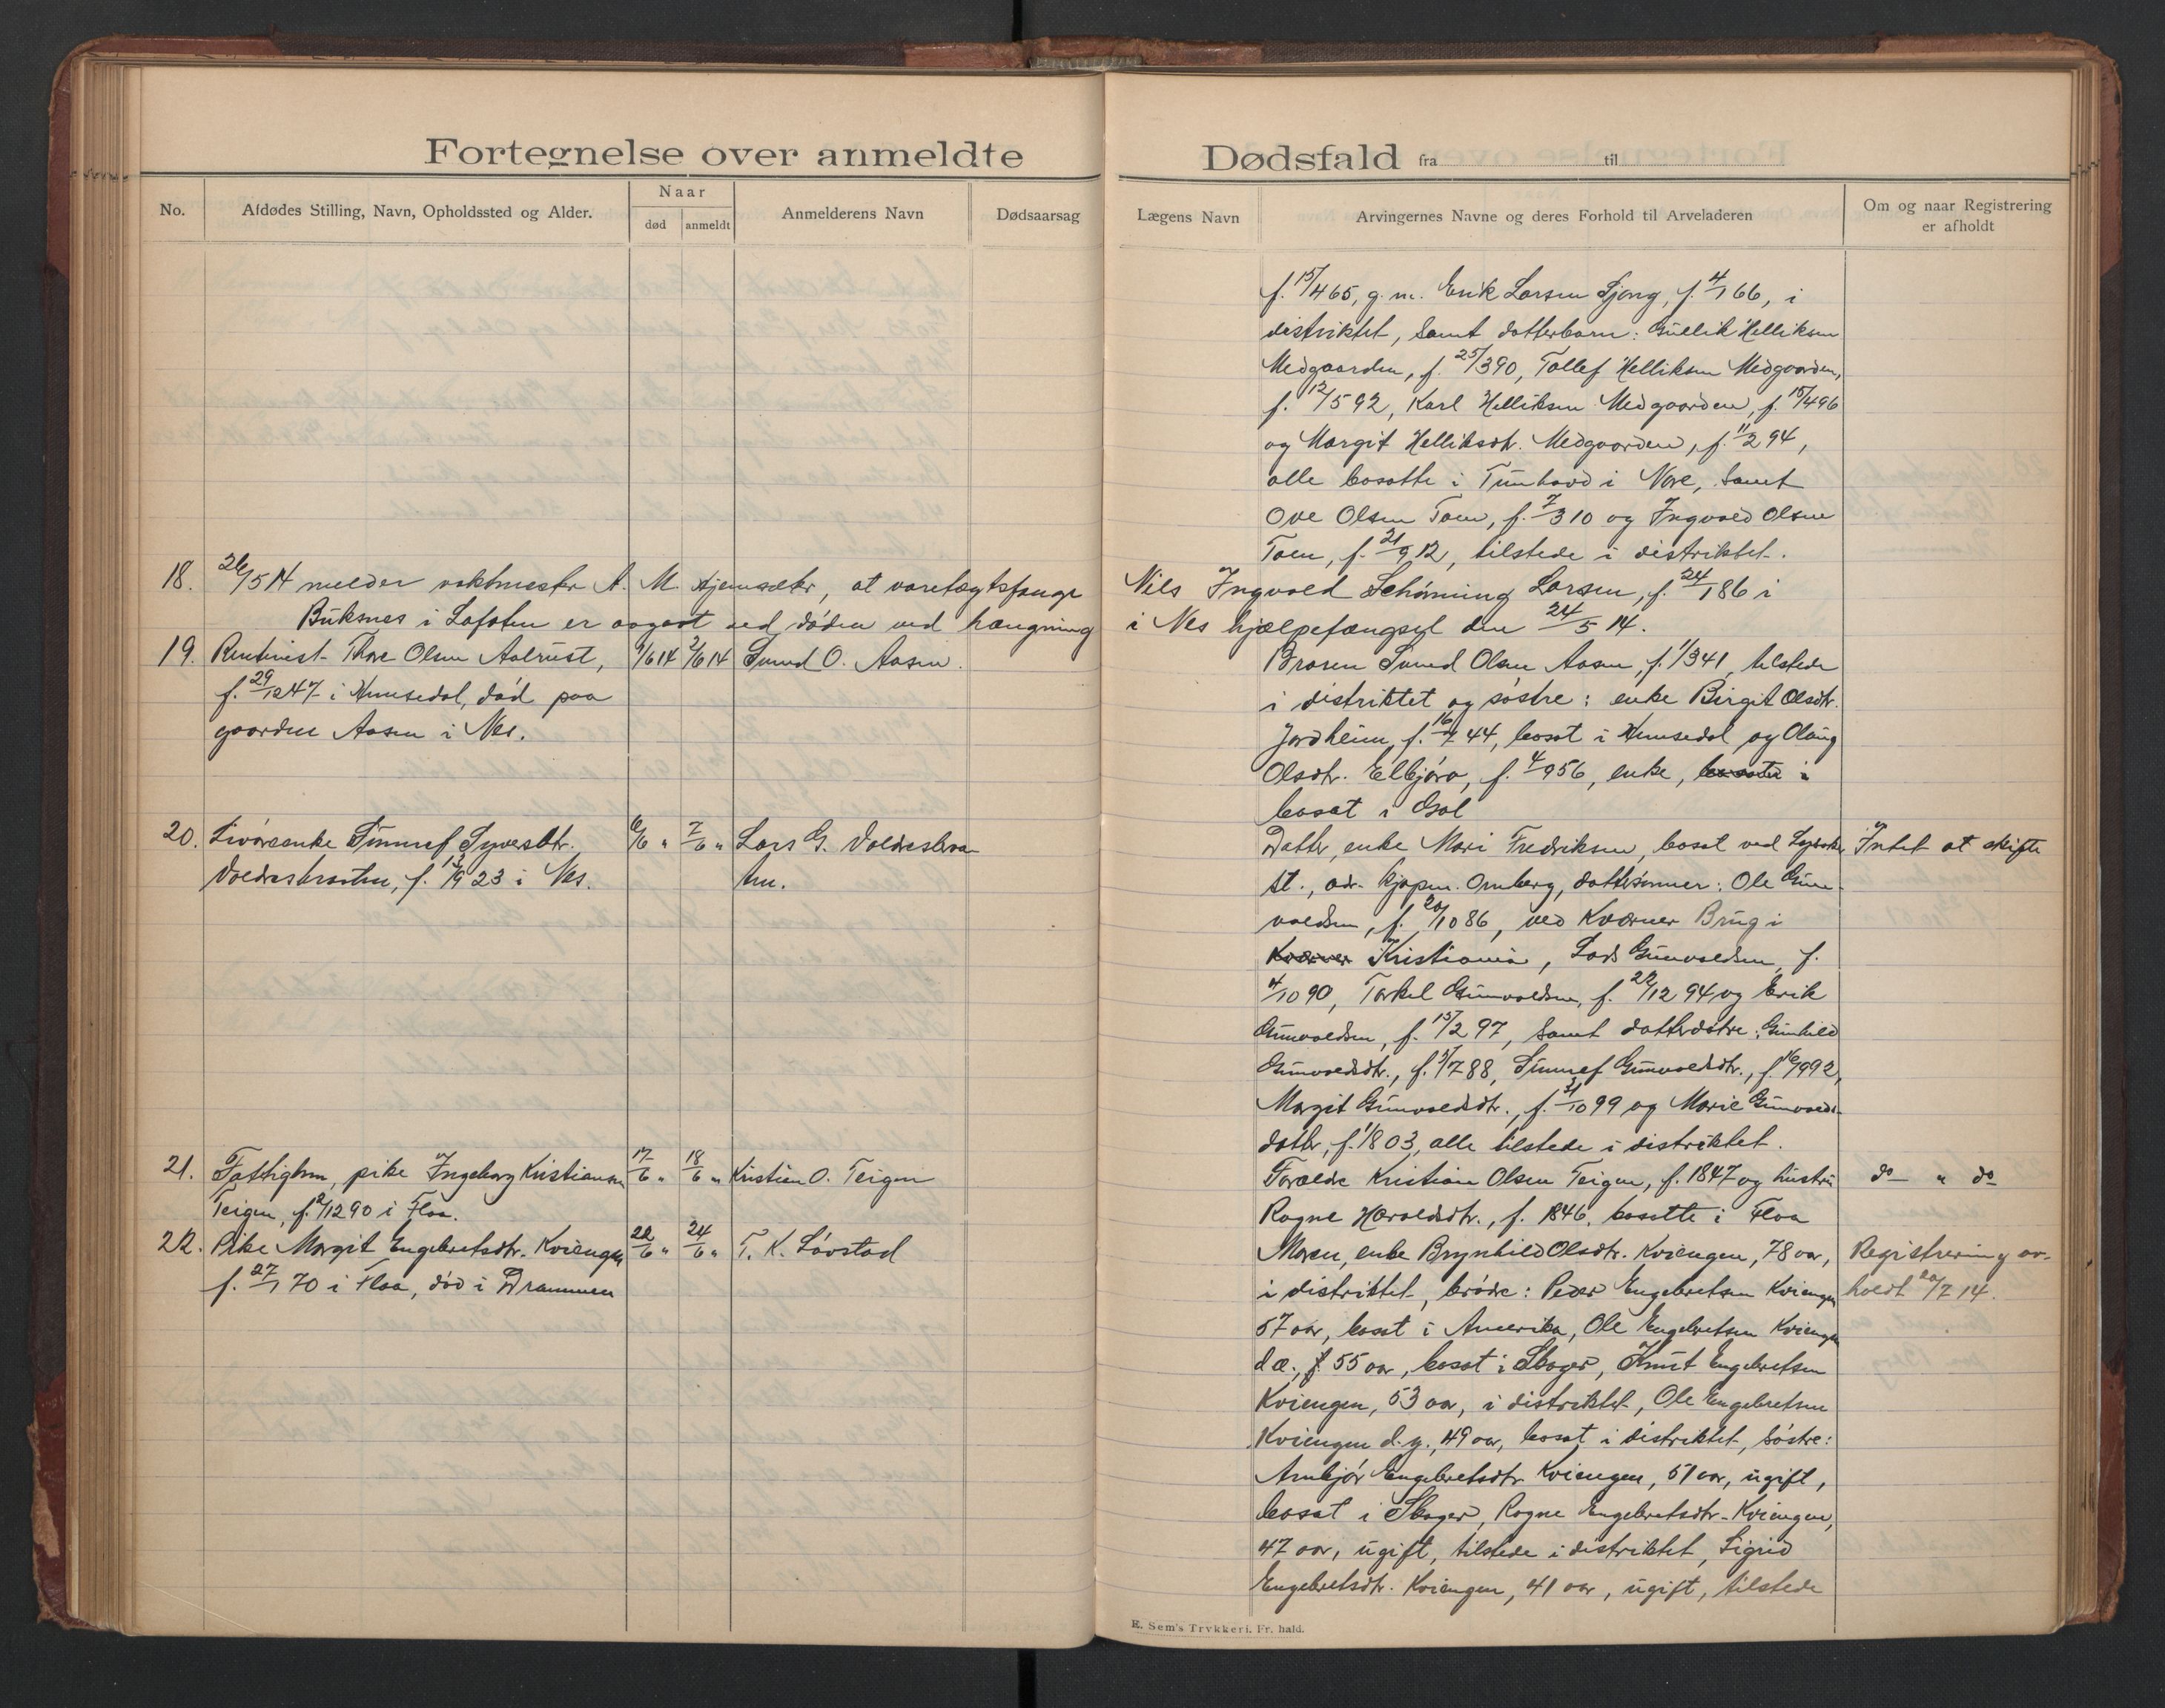 Fortegnelse over anmeldte Dødsfald fra til
No.
Afdødes Stilling, Navn, Opholdssted og Alder.
Naar
død anmeldt
Anmelderens Navn
Dødsaarsag
Lægens Navn
Arvingernes Navne og deres Forhold til Arveladeren
Om og naar Registrering
er afholdt
f. 15/4 65, g. m. Erik Larsen Ljong, f. 4/1 66, i
distriktet, samt datterbarn: Gullik Helliksen
Medgaarden, f. 25/3 90, Tollef Helliksen Medgaarden,
f. 12/5 92, Karl Helliksen Medgaarden, f. 15/4 96
og Margit Helliksdtr. Medgaarden, f. 11/2 94,
alle bosatte i Tunhovd i Nore, samt
Ove Olsen Toen, f. 7/3 10 og Ingvald Olsen
Toen, f. 21/9 12, tilstede i distriktet.
18. 26/5 14 melder vaktmester A. M. Hjemsæter, at varetægtsfange Nils Ingvald Schønning Larsen, f. 24/1 86 i
Buksnes i Lofoten er avgaat ved døden ved hængning i Nes hjælpefængsel den 24/5 14.
19. Rentenist Thore Olsen Aalrust, 1/6 14 2/6 14 Svend O. Aasen.
f. 29/12 47 i Hemsedal, død paa
gaarden Aasen i Nes.
Broren Svend Olsen Aasen, f. 1/3 41, tilstede
i distriktet og søstre: enke Birgit Olsdtr.
Jordheim, f. 16/7 44, bosat i Hemsedal og Olaug
Olsdtr. Elbjøro, f. 4/9 56, enke, bosatte i
bosat i Gol
20. Livøreenke Sünnef Syversdtr. 6/6 " 7/6 " Lars G. Valdresbraa
Valdresbraaten, f. 13/9 23 i Nes. ten.
Datter, enke Mari Fredriksen, bosat ved Lysaker Intet at skifte
st., adr. kjøpm. Omberg, dattersønner: Ole Gun-
valdsen, f. 20/10 86, ved Kværner Brug i
Kværner Kristiania, Lars Gunvaldsen, f.
4/10 90, Torkel Gunvaldsen, f. 22/12 94, og Erik
Gunvaldsen, f. 15/2 97, samt datterdøtre: Gunhild
Gunvaldsdtr., f. 5/7 88, Sünnef Gunvaldsdtr., f. 16/9 92,
Margit Gunvaldsdtr., f. 31/10 99 og Marie Gunvalds-
datter, f. 1/8 03, alle tilstede i distriktet.
21. Fattiglem, pike Ingeborg Kristiansen 17/6 " 18/6 " Kristian O. Teigen
Teigen, f. 2/12 90 i Flaa.
Forældre Kristian Olsen Teigen, f. 1847 og hustru do " do
Ragne Haraldsdtr., f. 1846, bosatte i Flaa
22. Pike Margit Engebretsdtr. Kviengen 22/6 " 24/6 " T. K. Løvstad
f. 27/1 70 i Flaa, død i Drammen
Moren, enke Brynhild Olsdtr. Kviengen, 78 aar, Registrering av-
i distriktet, brødre: Peder Engebretsen Kviengen holdt 20/7 14.
57 aar, bosat i Amerika, Ole Engebretsen Kviengen
d. æ., 55 aar, bosat i Skoger, Knut Engebretsen
Kviengen, 53 aar, i distriktet, Ole Engebretsen
Kviengen d. y., 49 aar, bosat i distriktet, søstre:
Arnbjør Engebretsdtr Kviengen, 51 aar, ugift,
bosat i Skoger, Ragne Engebretsdtr. Kviengen,
47 aar, ugift, tilstede i distriktet, Sigrid
Engebretsdtr. Kviengen, 41 aar, ugift, tilstede
E. Sem's Trykkeri, Fr. hald.